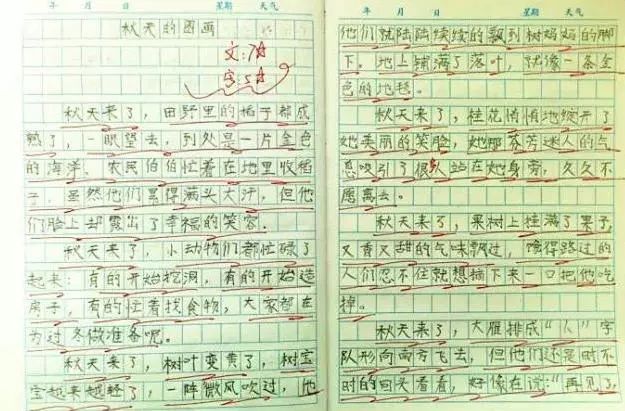 年 月 日 星期 天气
秋天的图画
文:7A
字:5A
秋天来了，田野里的稻子都成
熟了，一眼望去，到处是一片金色
的海洋。农民伯伯忙着在地里收稻
子，虽然他们累得满头大汗，但他
们脸上却露出了幸福的笑容。
秋天来了，小动物们都忙碌了
起来：有的开始挖洞，有的开始造
房子，有的忙着找食物，大家都在
为过冬做准备呢。
秋天来了，树叶变黄了，树宝
宝越来越轻了，一阵微风吹过，他
年 月 日 星期 天气
他们就陆陆续续的飘到树妈妈的脚
下。地上铺满了落叶，就像一条金
色的地毯。
秋天来了，桂花悄悄地绽开了
她美丽的笑脸，她那芬芳迷人的气
息吸引了很多人站在她身旁，久久不
愿离去。
秋天来了，果树上挂满了果子，
又香又甜的气味飘过，馋得路过的
人们忍不住就想摘下来一口把他吃
掉。
秋天来了，大雁排成“人”字
队形向南方飞去，但他们还是时不
时的回头看看，好像在说：“再见了，